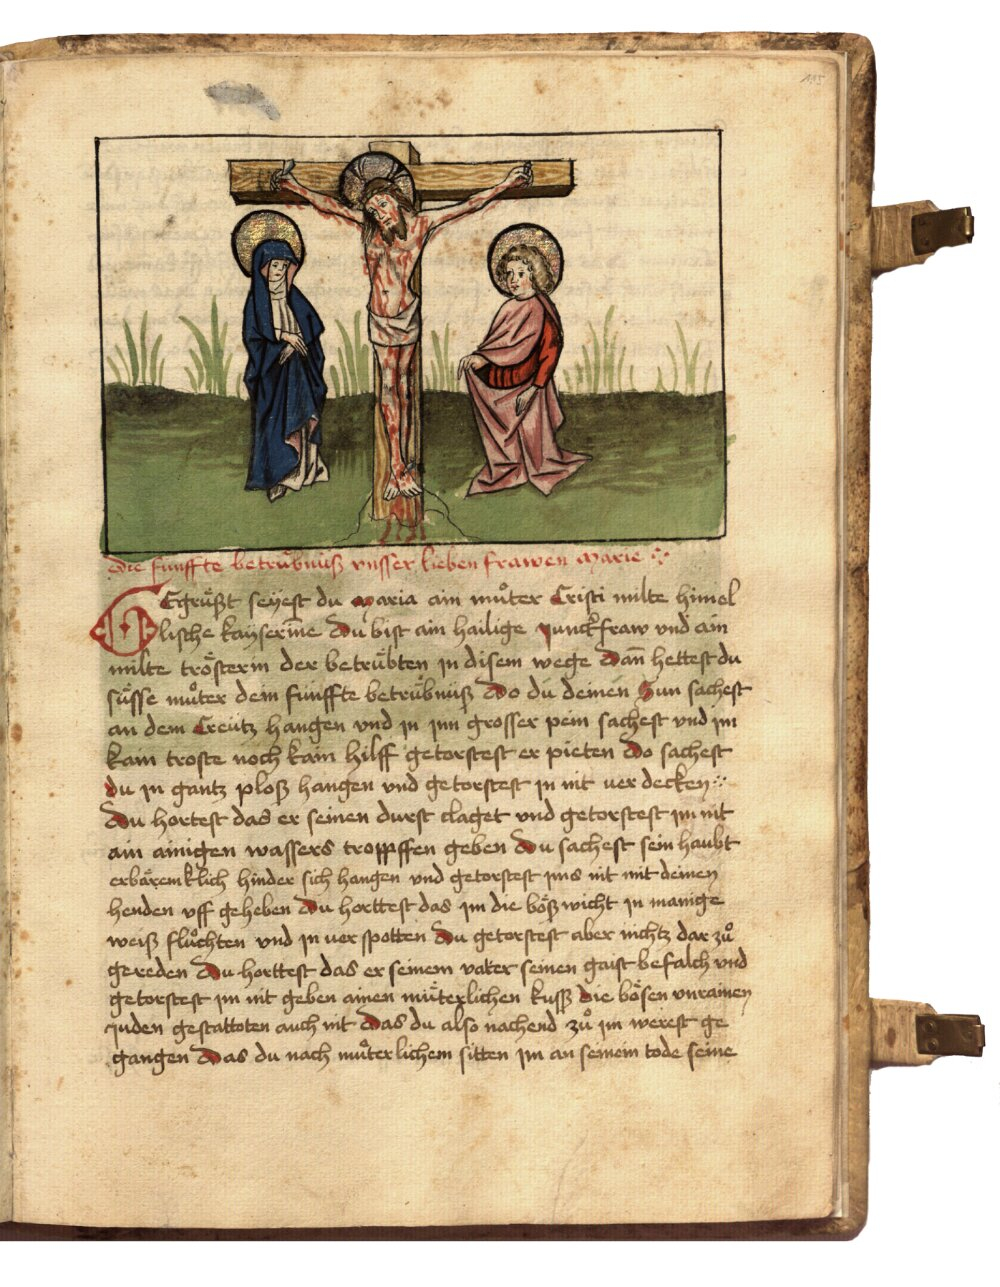 115
Die funffte betruͤbnuͤß vnsser lieben frawen Marie
Gegruͤßt seyest du Maria ain muͦter Cristi milte himel
lische kayserin̄e Du bist ain hailige Junckfraw vnd ain
milte troͤsterin der betruͤbten in disem wege Dan̄ hettest du
suͤsse muͦter dein fuͤnffte betruͤbnuͤß Do du deinen Sun sachest
an dem Creuͤtz hangen vnd in inn grosser pein sachest vnd im
kain troste noch kain hilff getorstest er pieten Do sachest
du in gantz ploß hangen vnd getorstest in nit ver decken
Du hortest das er seinen durst claget vnd getorstest im nit
ain ainigen wassers tropffen geben Du sachest sein haubt
erbaͤremklich hinder sich hangen vnd getorstest ims nit mit deinen
henden vff geheben Du horttest das im die boͤßwicht in manige
weiß fluͦchten vnd in ver spotten Du getorstest aber nichtz dar zuͦ
gereden Du horttest das er seinem vater seinen gaist befalch vnd
getorstest im nit geben ainen muͤterlichen kuss Die boͤsen vnrainen
juden gestattoten auch nit Das du also nachend zuͦ im werest ge
gangen Das du nach muͦterlichem sitten im an seinem tode seine